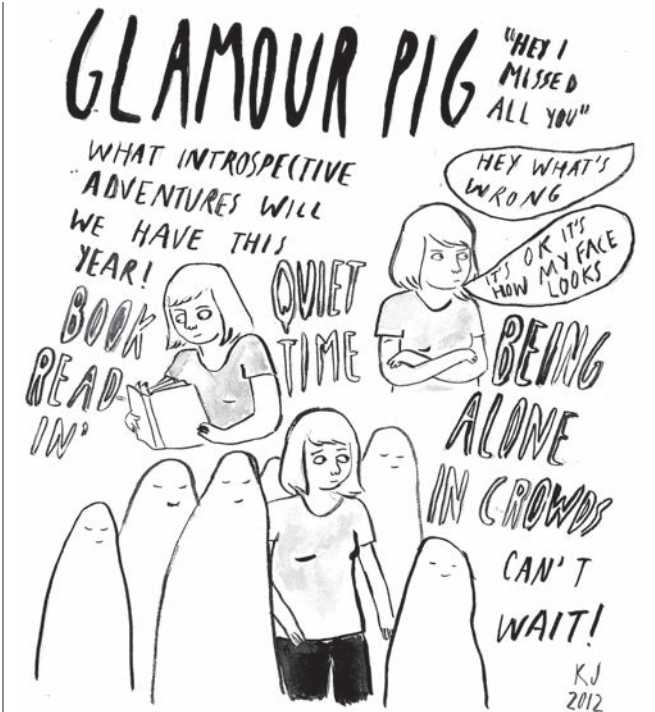 GLAMOUR PIG
"HEY I
MISSED
ALL YOU"
WHAT INTROSPECTIVE
ADVENTURES WILL
WE HAVE THIS
YEAR!
HEY WHAT'S
WRONG
IT'S OK IT'S
HOW MY FACE
LOOKS
BOOK
READ-
IN'
QUIET
TIME
BEING
ALONE
IN CROWDS
CAN'T
WAIT!
KJ
2012